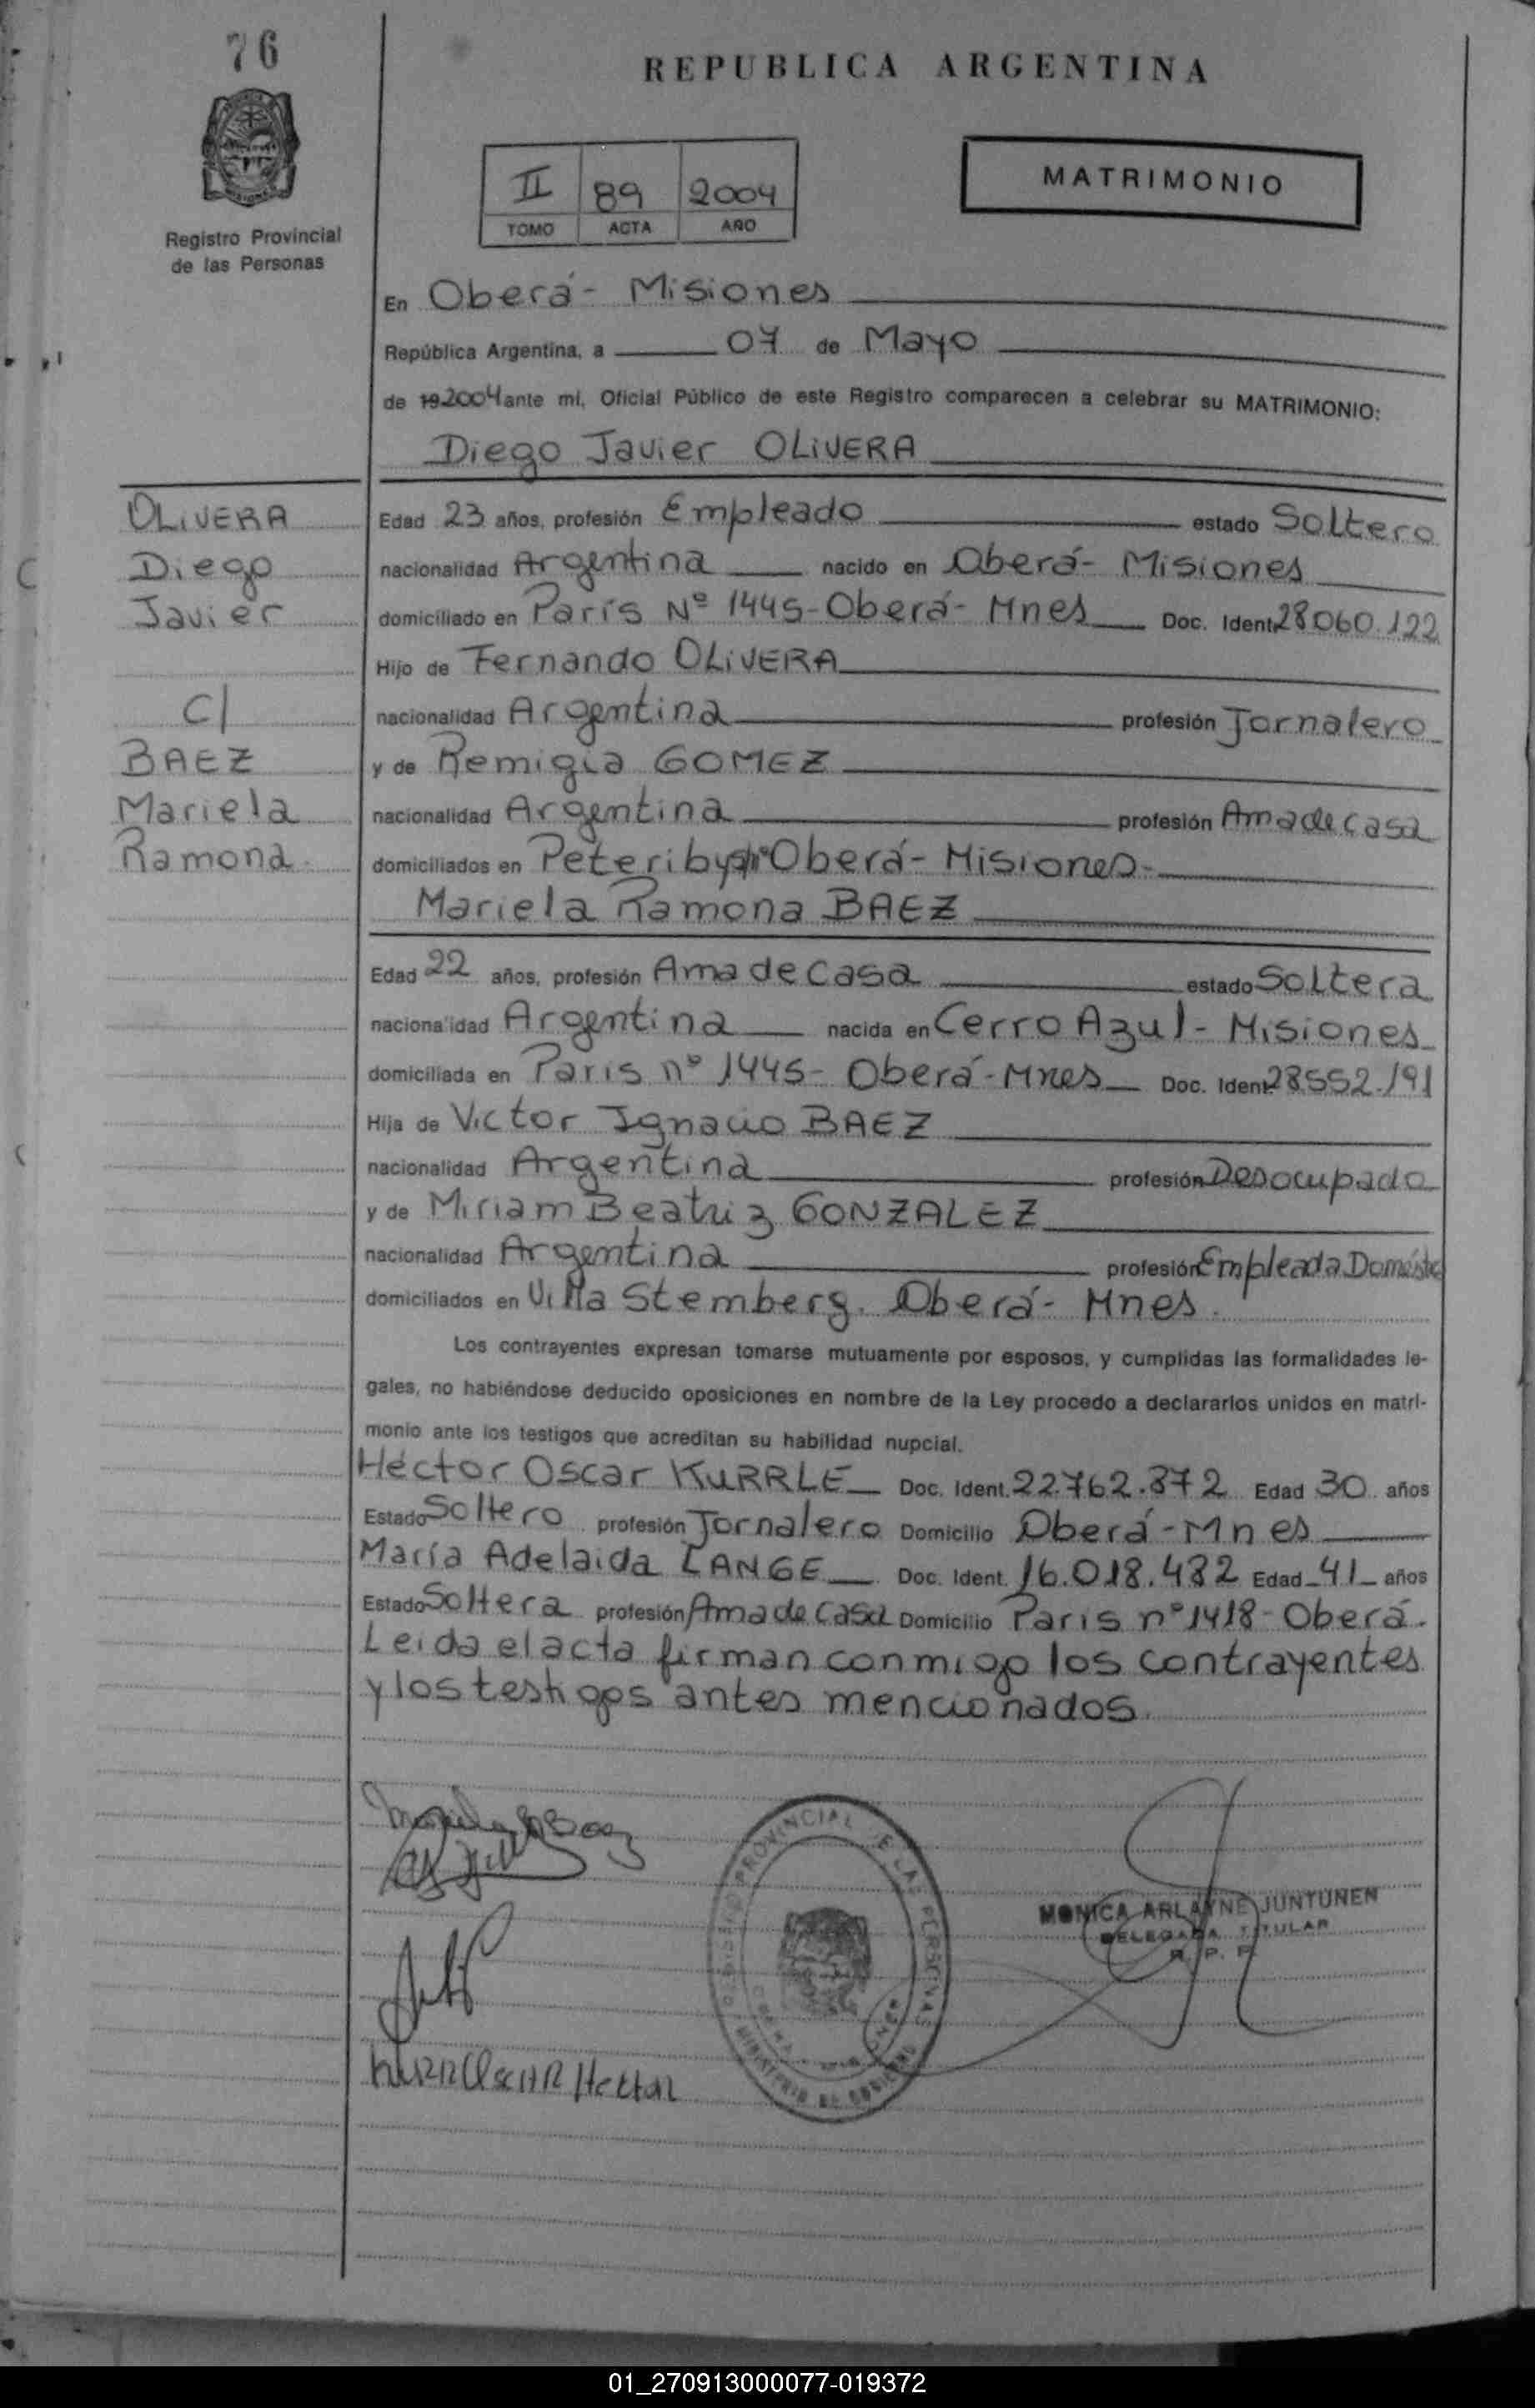 76
REPUBLICA ARGENTINA
II 89 2004
TOMO ACTA AÑO
MATRIMONIO
Registro Provincial
de las Personas
En Oberá - Misiones
República Argentina, a 07 de Mayo
de 192004 ante mí, Oficial Público de este Registro comparecen a celebrar su MATRIMONIO:
Diego Javier OLIVERA
OLIVERA
Diego
Javier
C/
BAEZ
Mariela
Ramona
Edad 23 años, profesión Empleado estado Soltero
nacionalidad Argentina nacido en Oberá - Misiones
domiciliado en París Nº 1445 - Oberá - Mnes Doc. Ident. 28060.122
Hijo de Fernando OLIVERA
nacionalidad Argentina profesión Jornalero
y de Remigia GOMEZ
nacionalidad Argentina profesión Ama de casa
domiciliados en Oberá - Misiones -
Mariela Ramona BAEZ
Edad 22 años, profesión Ama de casa estado Soltera
nacionalidad Argentina nacida en Cerro Azul - Misiones
domiciliada en Paris nº 1445 - Oberá - Mnes Doc. Ident. 28.552.191
Hija de Victor Ignacio BAEZ
nacionalidad Argentina profesión Desocupado
y de Miriam Beatriz GONZALEZ
nacionalidad Argentina profesión Empleada Domést
domiciliados en Villa Stemberg. Oberá - Mnes.
Los contrayentes expresan tomarse mutuamente por esposos, y cumplidas las formalidades le-
gales, no habiéndose deducido oposiciones en nombre de la Ley procedo a declararlos unidos en matri-
monio ante los testigos que acreditan su habilidad nupcial.
Héctor Oscar KURRLE Doc. Ident. 22.762.372 Edad 30 años
Estado Soltero profesión Jornalero Domicilio Oberá - Mnes
María Adelaida LANGE Doc. Ident. 16.018.482 Edad 41 años
Estado Soltera profesión Ama de casa Domicilio Paris nº 1418 - Oberá.
Leida el acta firman conmigo los contrayentes
y los testigos antes mencionados.
REGISTRO PROVINCIAL DE LAS PERSONAS
MINISTERIO DE GOBIERNO
MONICA ARLAYNE JUNTUNEN
DELEGADA TITULAR
R. P. P.
01_270913000077-019372